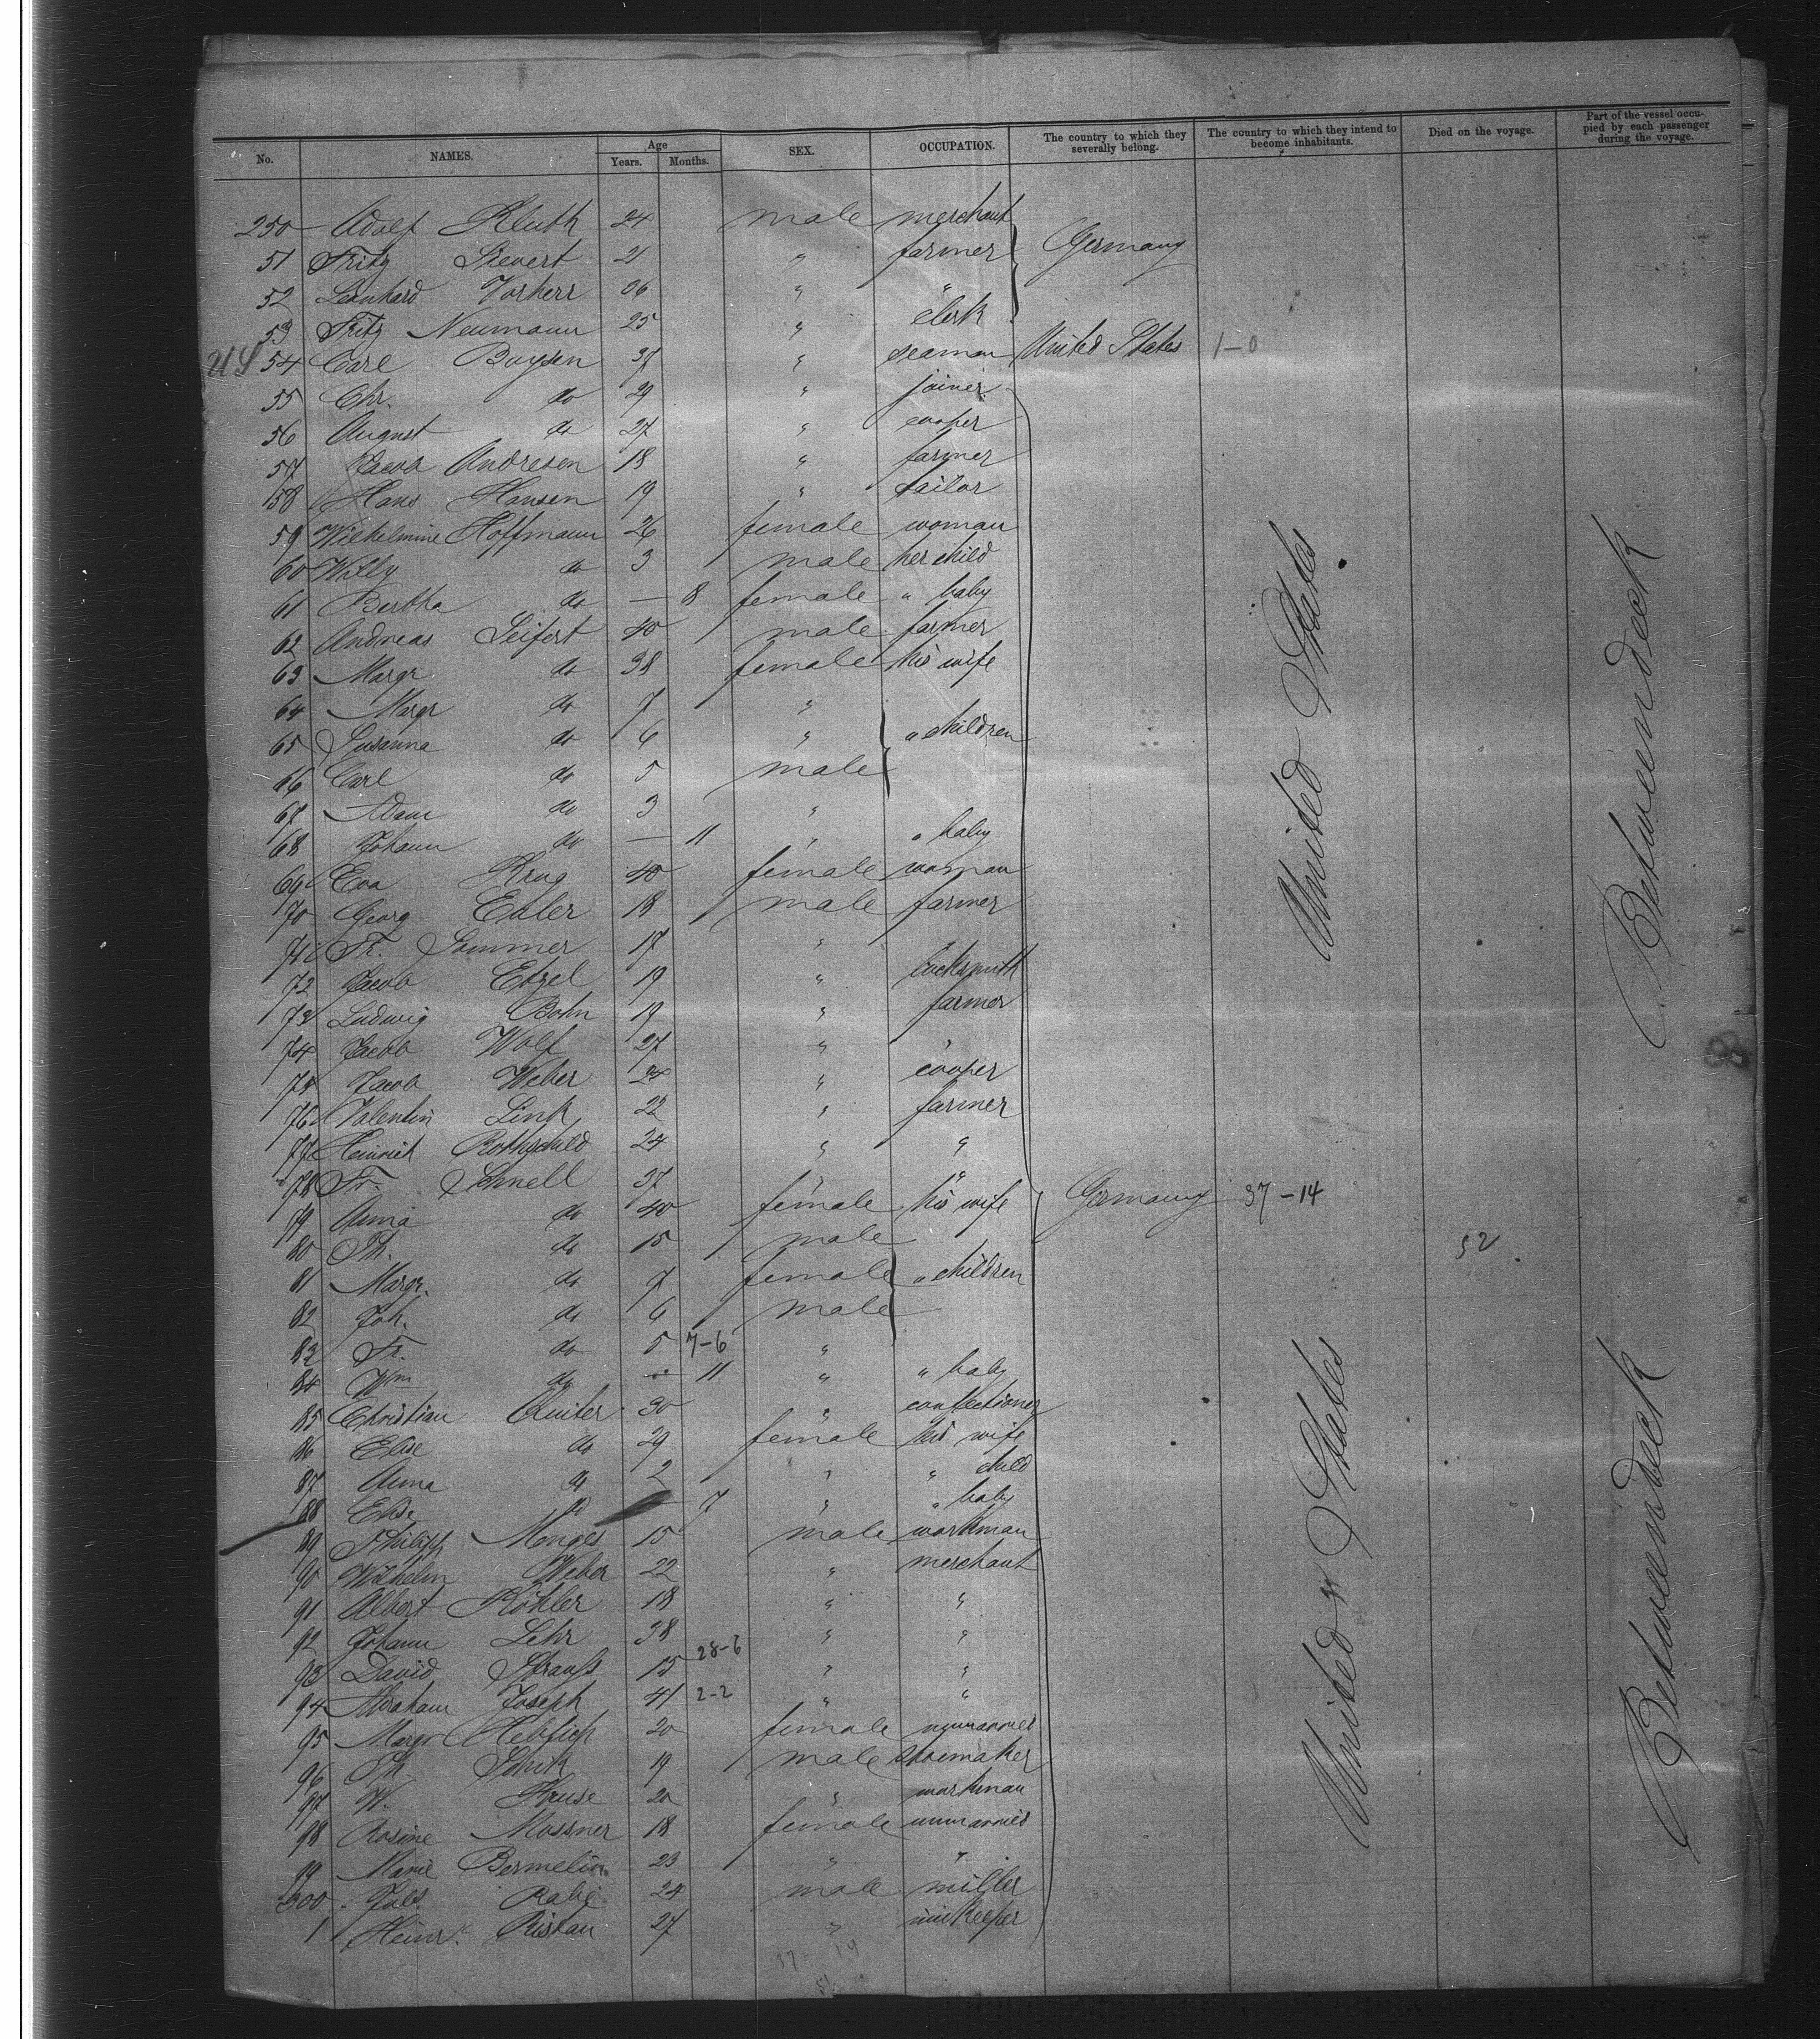 No. NAMES. Age Years. Months. SEX. OCCUPATION. The country to which they severally belong. The country to which they intend to become inhabitants. Died on the voyage. Part of the vessel occupied by each passenger during the voyage.
250 Adolf Kluth 24 male merchant
51 Fritz Sievert 21 " farmer Germany
52 Leonhard Vorherr 06 " "
53 Fritz Neumann 25 " clerk
US 54 Carl Boysen 37 " seaman United States 1-0
55 Chr. do 29 " joiner
56 August do 27 " cooper
57 Jacob Andresen 18 " farmer
58 Hans Hansen 19 " tailor
59 Wilhelmine Hoffmann 26 female woman
60 Willy do 3 male her child
61 Bertha do — 8 female " baby
62 Andreas Seifert 40 male farmer
63 Margr do 38 female his wife
64 Margr do 7 "
65 Susanna do 6 " " children
66 Carl do 5 male
67 Adam do 3 "
68 Johann do — 11 " " baby
69 Eva Krug 40 female woman
70 Georg Edler 18 male farmer
71 Fr. Sommer 17 "
72 Jacob Etzel 19 " locksmith
73 Ludwig Bohn 19 " farmer
74 Jacob Wolf 27 " "
75 Jacob Weber 24 " cooper
76 Valentin Link 22 " farmer
77 Heinrich Rothschild 24 " "
78 Fr. Schnell 37 " "
79 Anna do 40 female his wife Germany 37-14
80 Ph. do 15 male 52
81 Margr. do 7 female " children
82 Joh. do 6 male
83 Fr. do 5 7-6 "
84 Wm do — 11 " " baby
85 Christian Quiter 30 " confectioner
86 Elise do 29 female his wife
87 Anna do 2 " " child
88 Elise do — 7 " " baby
89 Philipp Monges 15 male workman
90 Wilhelm Weber 22 " merchant
91 Albert Köhler 18 " "
92 Johann Lehr 38 " "
93 David Strauss 15 28-6 " "
94 Abraham Joseph 41 2-2 " "
95 Margr 20 female unmarried
96 Ph. Schik 19 male shoemaker
97 W. Kruse 20 " workman
98 Rosine Mossner 18 female unmarried
99 Marie Bermelin 23 " "
300 Johs. Rabe 24 male miller
1 Heinr. Ristau 27 " innkeeper
37-14
51
United States
Betweendeck
United States
Betweendeck
8